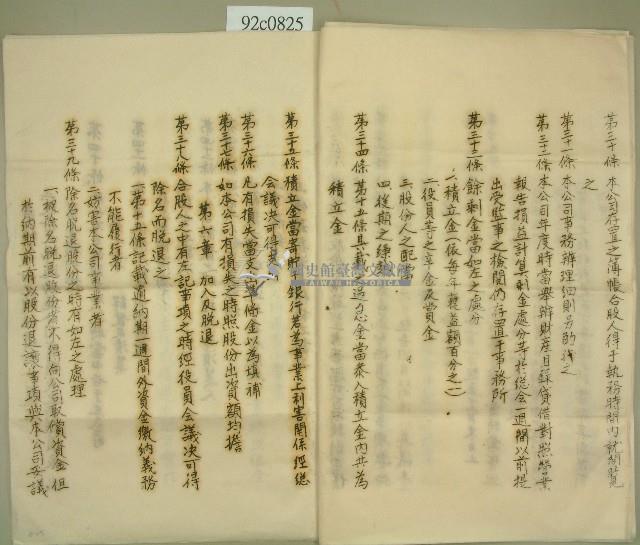 92c0825
第三十條 本公司存置之簿帳合股人得于執務時間內就閱覽
之
第三十一條 本公司事務辦理細則另酌議之
第三十二條 本公司年度時當舉辦財產目錄貸借對照營業
報告損益計算剩金處分等於總会一週間以前提
出受監事之檢閱仍存置于事務所
第三十三條 餘剩金當如左之處分
一、積立金一依每年獲益額百分之一
二、役員等之享金及賞金
三、股份人之配當
四、後期之繰越
第三十四條 第十五條具載過怠金當案入積立金內共為
積立金
第三十五條 積立金當寄附銀行若為事業上利害關係經總
会議決可得支
第三十六條 凡有損失當支準備金以為填補
第三十七條 如本公司有損失之時照股份出資額均擔
第六章 加入及脫退
第三十八條 合股人之中有左記事項之時經役員会議決可得
除名而脫退之
一、第十五條記載過納期一週間外資金繳納義務
不能履行者
二、妨害本公司事業者
第三十九條 除名脫退股份之時有如左之處理
一、被除名脫退股份者不得向公司取償資金但
於納期前有以股份退讓事項與本公司妥議
國史館臺灣文獻館
TAIWAN HISTORICA